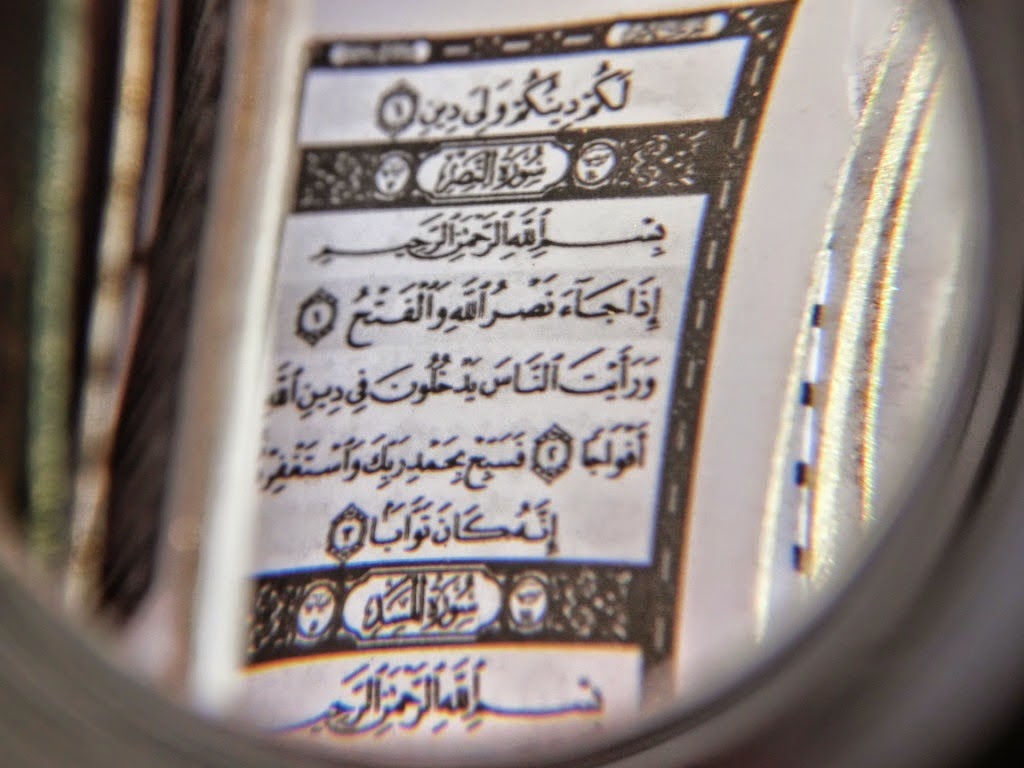 لَكُمْ دِينُكُمْ وَلِيَ دِينِ ٦
سُورَةُ النَّصْرِ
بِسْمِ ٱللَّهِ ٱلرَّحْمَٰنِ ٱلرَّحِيمِ
إِذَا جَآءَ نَصْرُ ٱللَّهِ وَٱلْفَتْحُ ١
وَرَأَيْتَ ٱلنَّاسَ يَدْخُلُونَ فِى دِينِ
أَفْوَاجًا ٢ فَسَبِّحْ بِحَمْدِ رَبِّكَ وَٱسْتَغْفِرْ
إِنَّهُۥ كَانَ تَوَّابًۢا ٣
سُورَةُ المَسَدِ
بِسْمِ ٱللَّهِ ٱلرَّحْمَٰنِ ٱلرَّحِيمِ